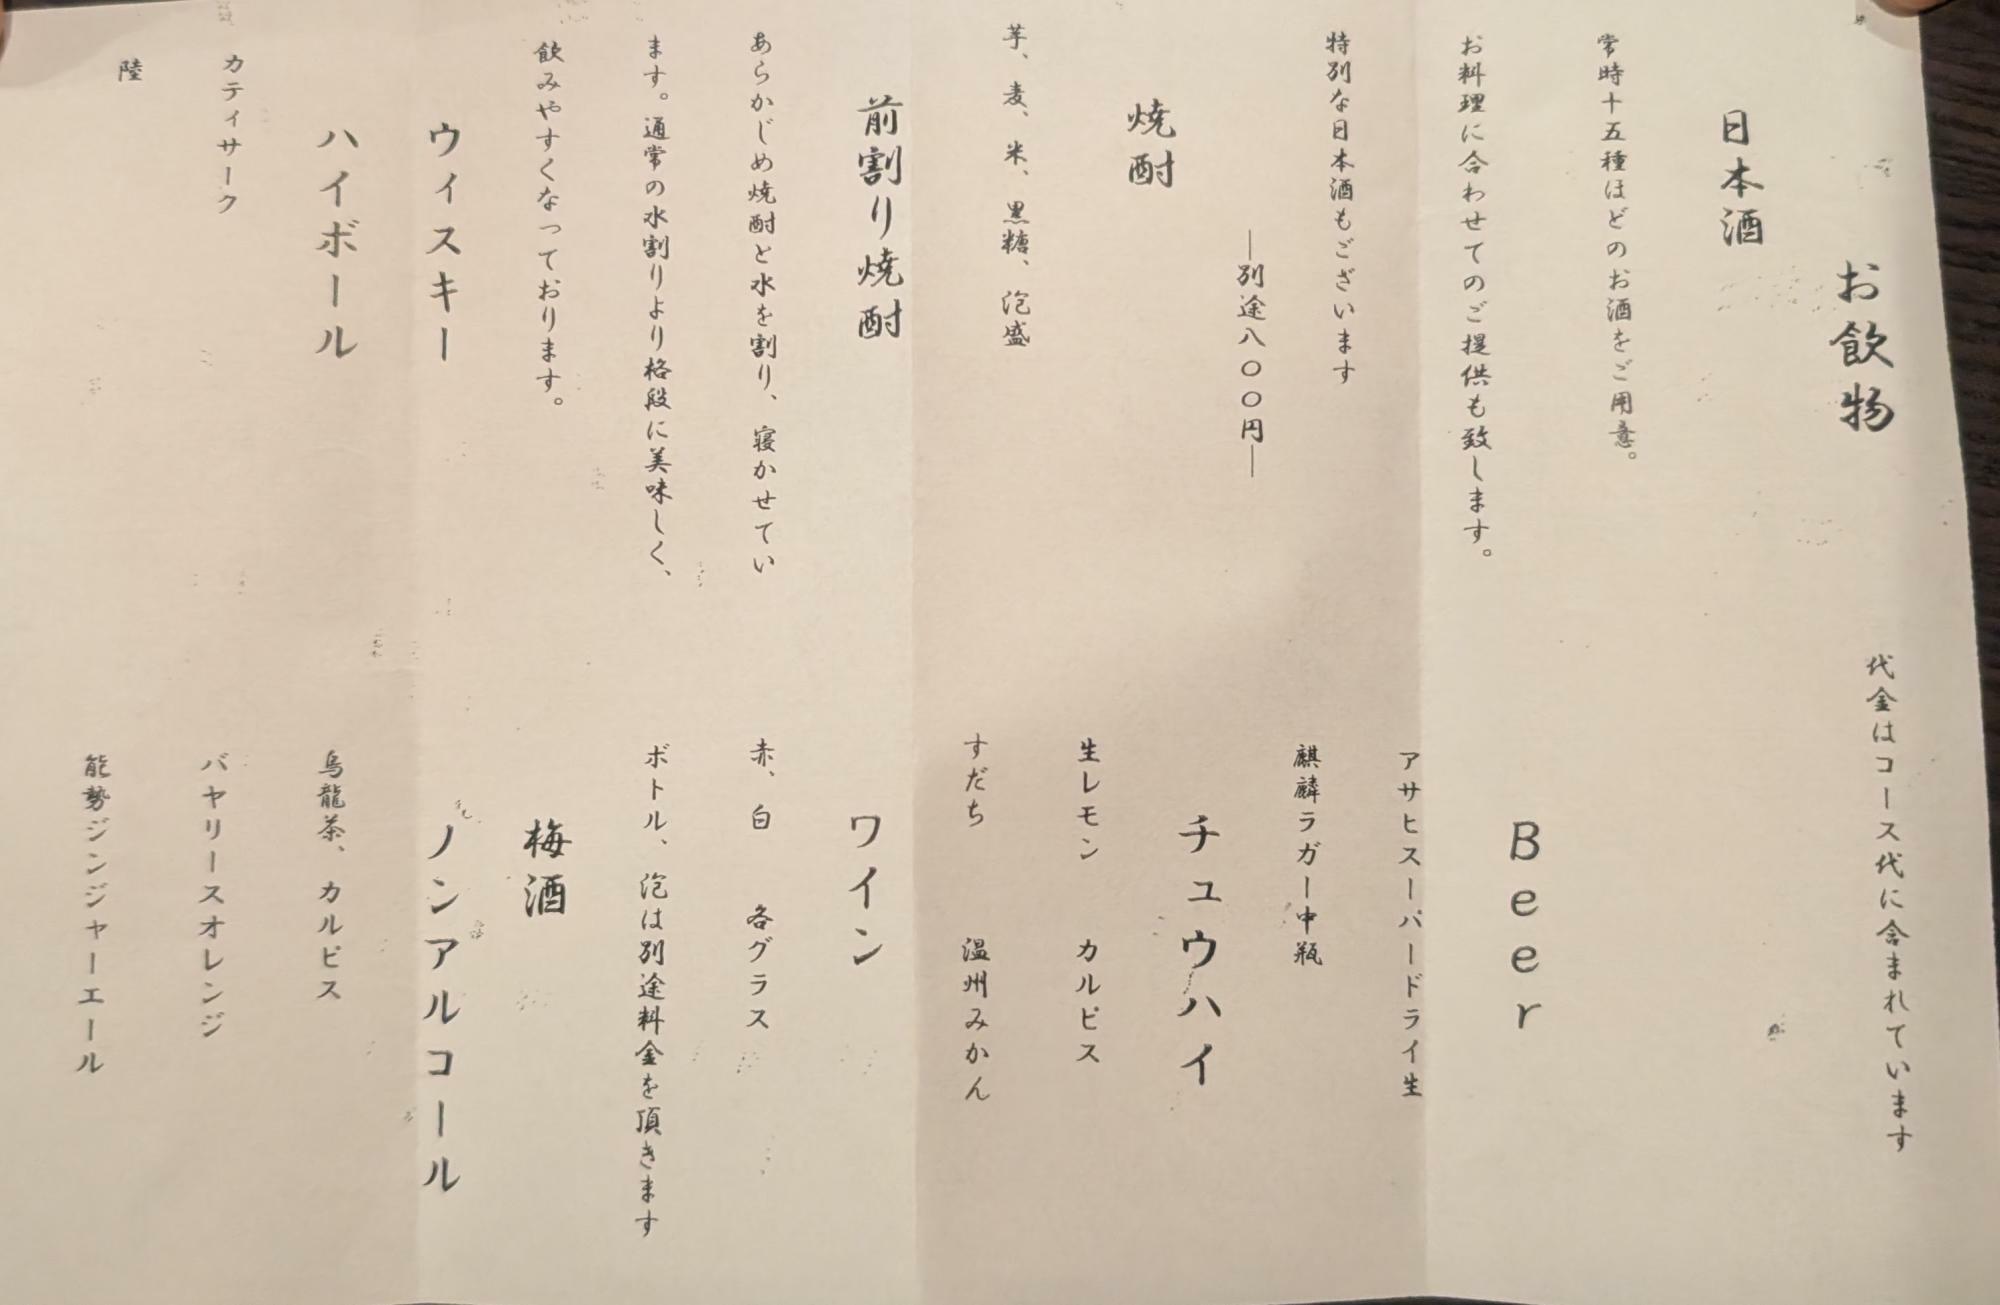 お飲物
代金はコース代に含まれています
日本酒
常時十五種ほどのお酒をご用意。
お料理に合わせてのご提供も致します。
特別な日本酒もございます
―別途八〇〇円―
焼酎
芋、麦、米、黒糖、泡盛
前割り焼酎
あらかじめ焼酎と水を割り、寝かせてい
ます。通常の水割りより格段に美味しく、
飲みやすくなっております。
ウィスキー
ハイボール
カティサーク
陸
Beer
アサヒスーパードライ生
麒麟ラガー中瓶
チュウハイ
生レモン カルピス
すだち 温州みかん
ワイン
赤、白 各グラス
ボトル、泡は別途料金を頂きます
梅酒
ノンアルコール
烏龍茶、カルピス
バヤリースオレンジ
能勢ジンジャーエール